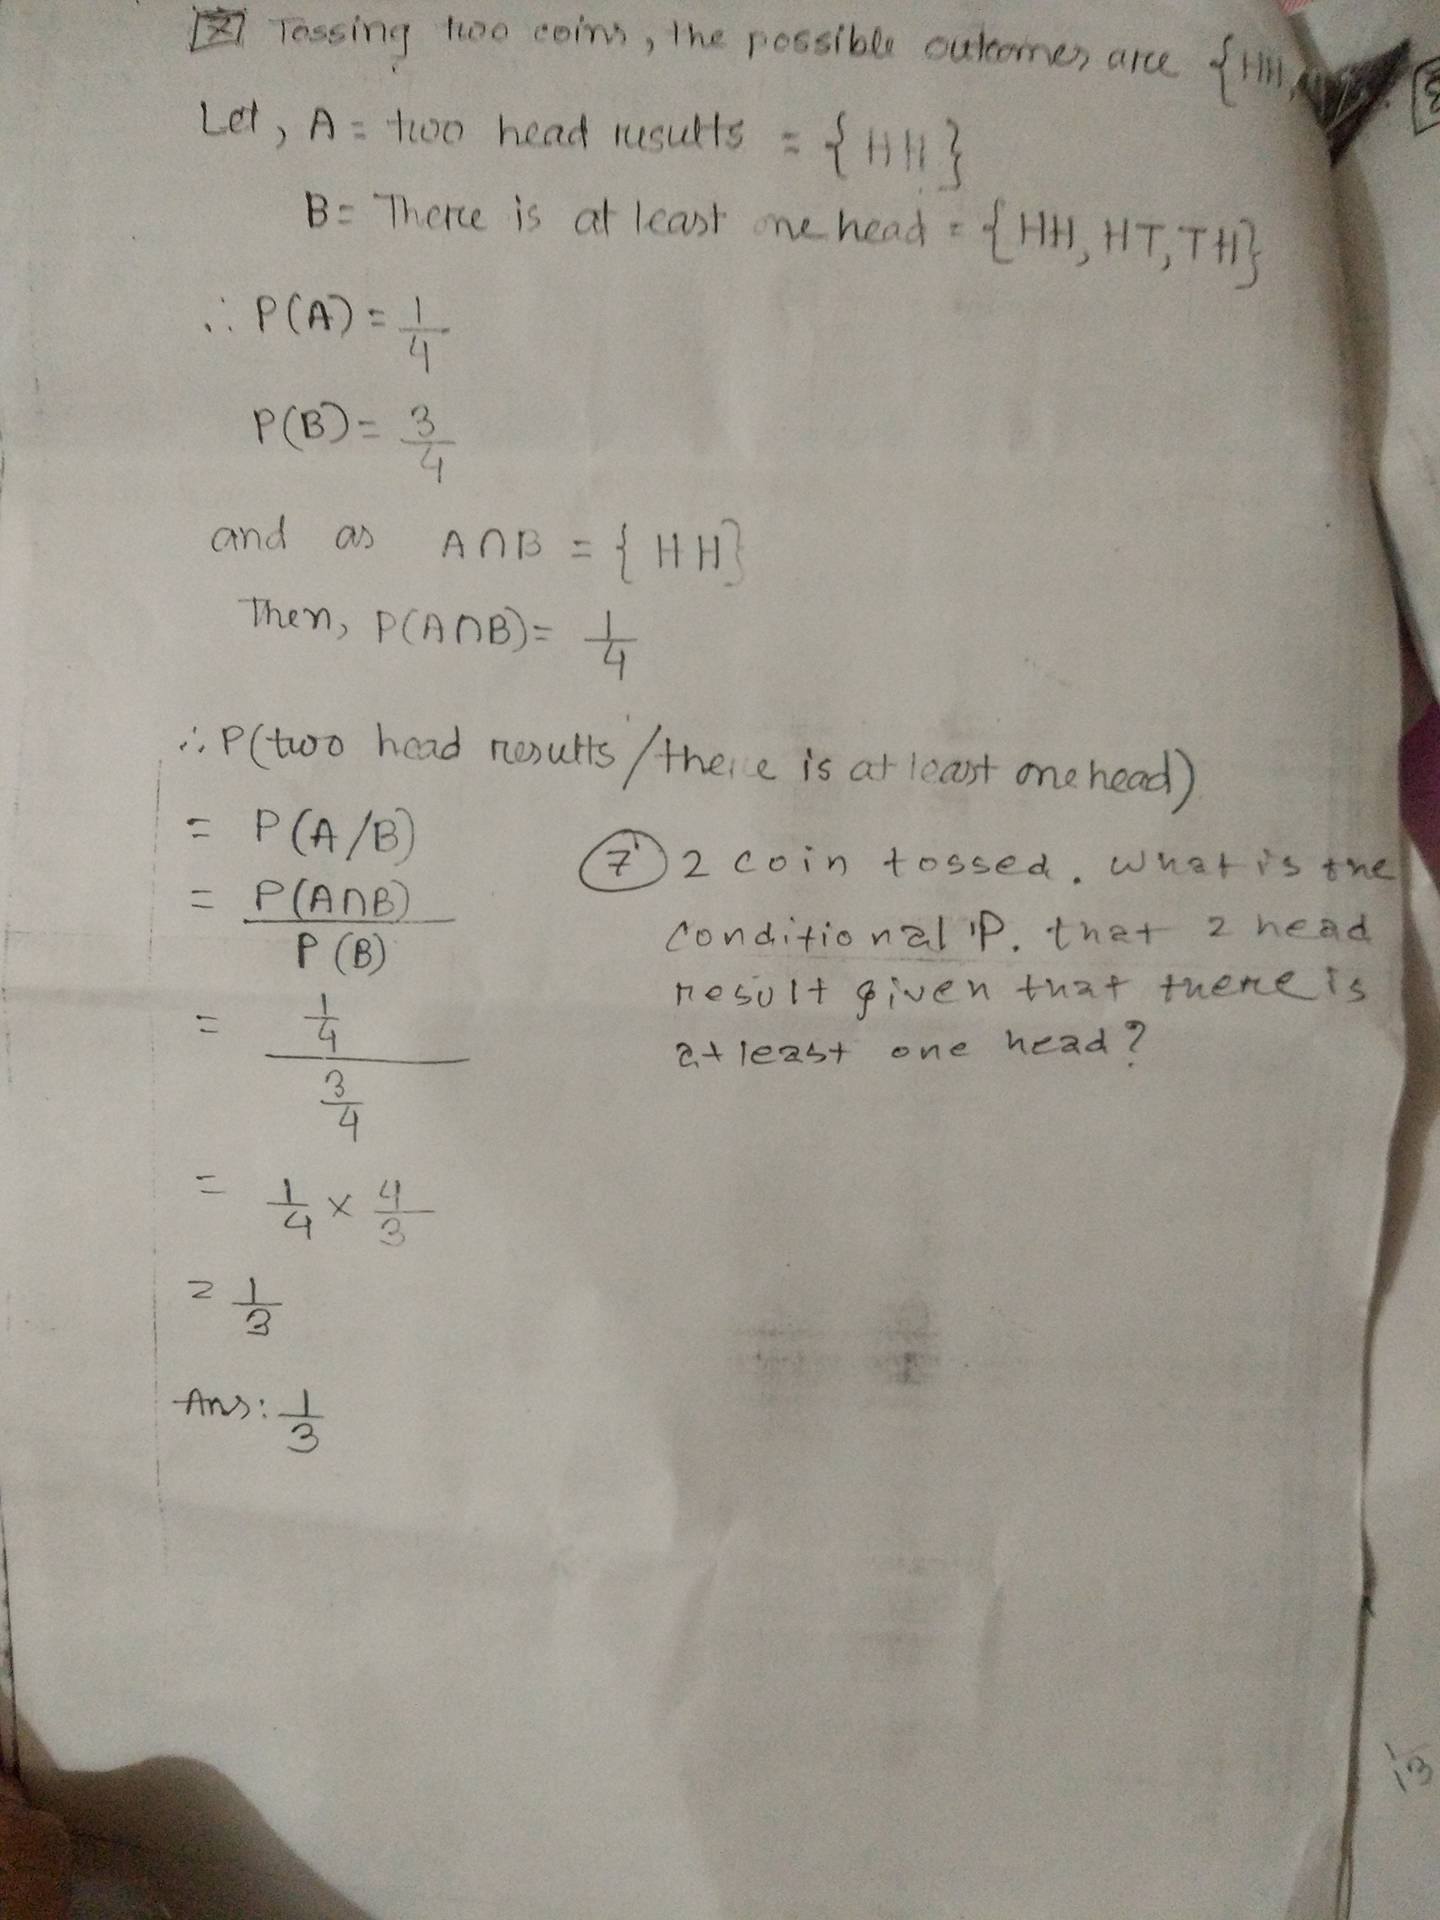 7 Tossing two coins, the possible outcomes are {HH,
Let, A = two head results = {HH}
B = There is at least one head = {HH, HT, TH}
∴ P(A) = 1/4
P(B) = 3/4
and as A∩B = {HH}
Then, P(A∩B) = 1/4
∴ P(two head results/there is at least one head)
= P(A/B)
= P(A∩B)/P(B)
= 1/4 / 3/4
= 1/4 × 4/3
= 1/3
Ans: 1/3
7 2 coin tossed. What is the
conditional P. that 2 head
result given that there is
at least one head?